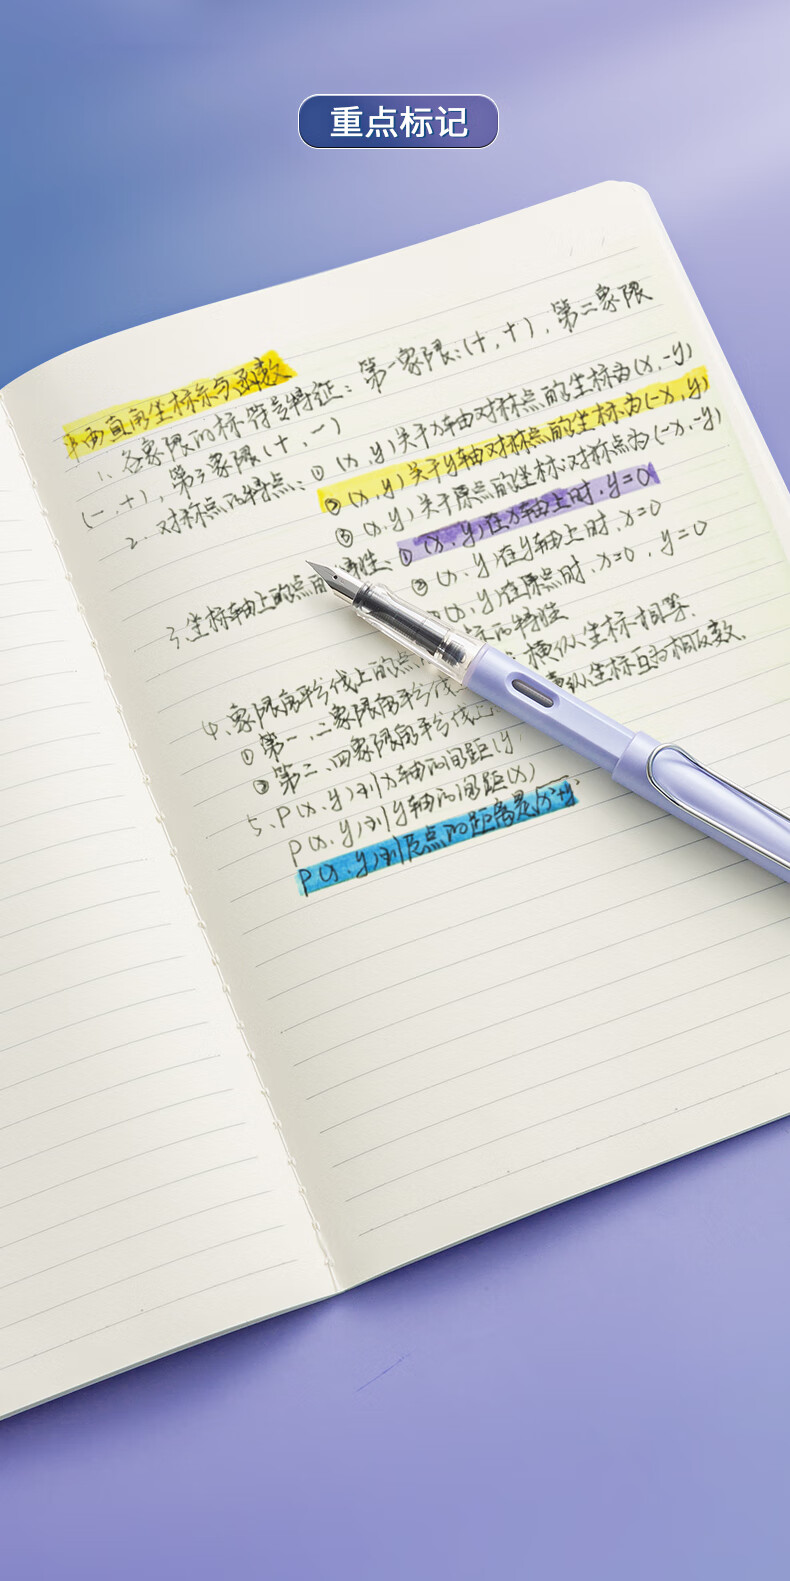 重点标记
平面直角坐标系与函数
1、各象限的标符号特征：第一象限：(+,+)，第二象限
(-,+)，第3象限(+,-)
2、对称点的特点：① (x,y)关于x轴对称点的坐标为(x,-y)
② (x,y)关于y轴对称点的坐标为(-x,y)
③ (x,y)关于原点的坐标对称点为(-x,-y)
3、坐标轴上的点的 性：① (x,y)在x轴上时，y=0
② (x,y)在y轴上时，x=0
(x,y)在原点时，x=0，y=0
4、象限角平分线上的点 标的特性
① 第一、二象限角平分线 横纵坐标相等.
② 第二、四象限角平分线上 纵坐标互为相反数.
5、P(x,y)到x轴的间距(y
P(x,y)到y轴的间距(x)
P(x,y)到原点的距离是